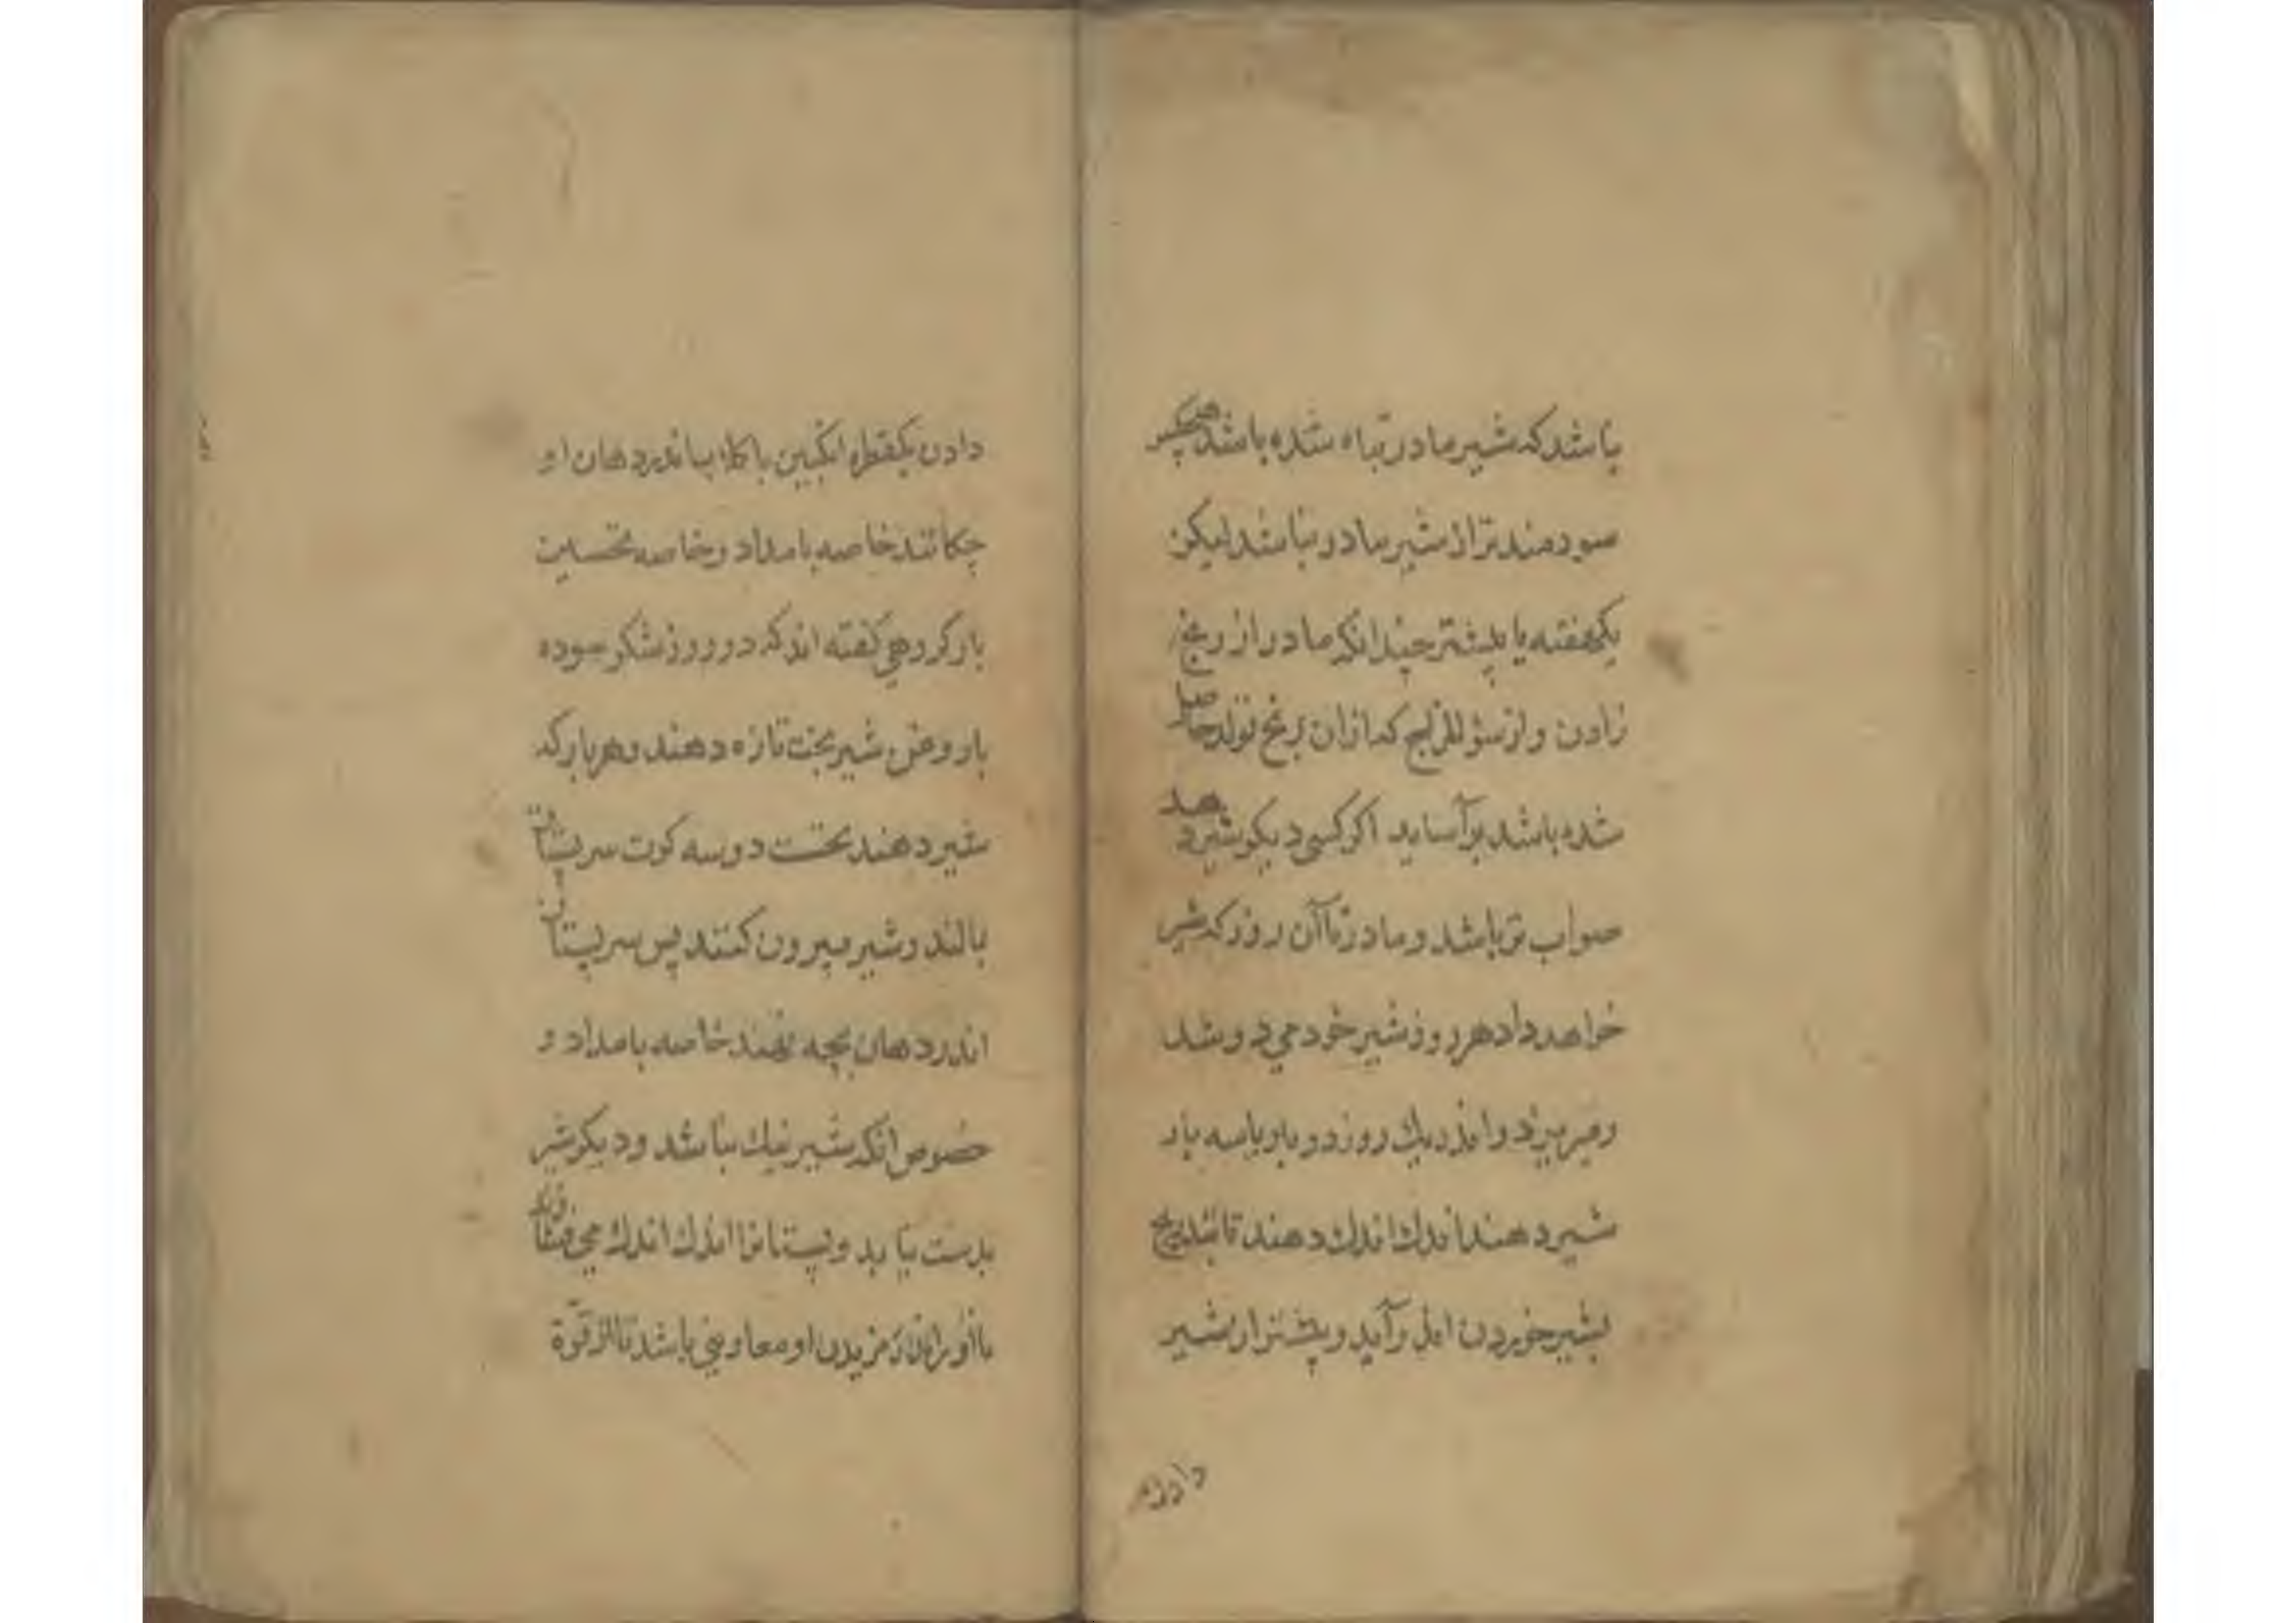 باشد که شیر مادر تباه شده باشد هیچکس
سودمندتر از شیر مادر نباشد لیکن
یکهفته یا بیشتر چندانکه مادر از رنج
زادن و از سؤ المزاج که ازان رنج تولد حاصل
شده باشد برآساید اکر کسی دیکر شیر دهد
صواب تر باشد و مادر تا آن روز که شیر
خواهد داد هر روز شیر خود می دوشد
ومیریزد و اندر یک روز دو بار یا سه بار
شیر دهند اندک اندک دهند تا بتدریج
بشیر خوردن اندر آید و پیشتر از شیر
دادن
دادن یکقطره انکبین باکلاب اندر دهان او
چکانند خاصه بامداد و خاصه نخستین
بار کروهی کفته اند که دو روز شکر سوده
با روغن شیربخت تازه دهند و هر بار که
شیر دهند نخست دوسه کرت سر پستان
بمالند و شیر بیرون کنند پس سر پستان
اندر دهان بچه نهند خاصه بامداد و
خصوص انکه شیر نیک نباشد و دیکر شیر
بدست نیاید و پستانرا اندک اندک می فشارند
تا او را اندر مزیدن او معاونتی باشد تا از قوة